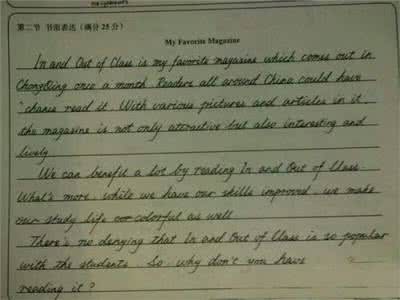 neighbours
第二节 书面表达（满分25分）
My Favorite Magazine
In and Out of Class is my favorite magazine which comes out in
ChongQing once a month. Readers all around China could have
chance read it. With various pictures and articles in it,
the magazine is not only attractive but also interesting and
lively
We can benefit a lot by reading In and Out of Class.
What's more, while we have our skills improved, we make
our study life colorful as well
There's no denying that In and Out of Class is so popular
with the students. So, why don't you have
reading it?